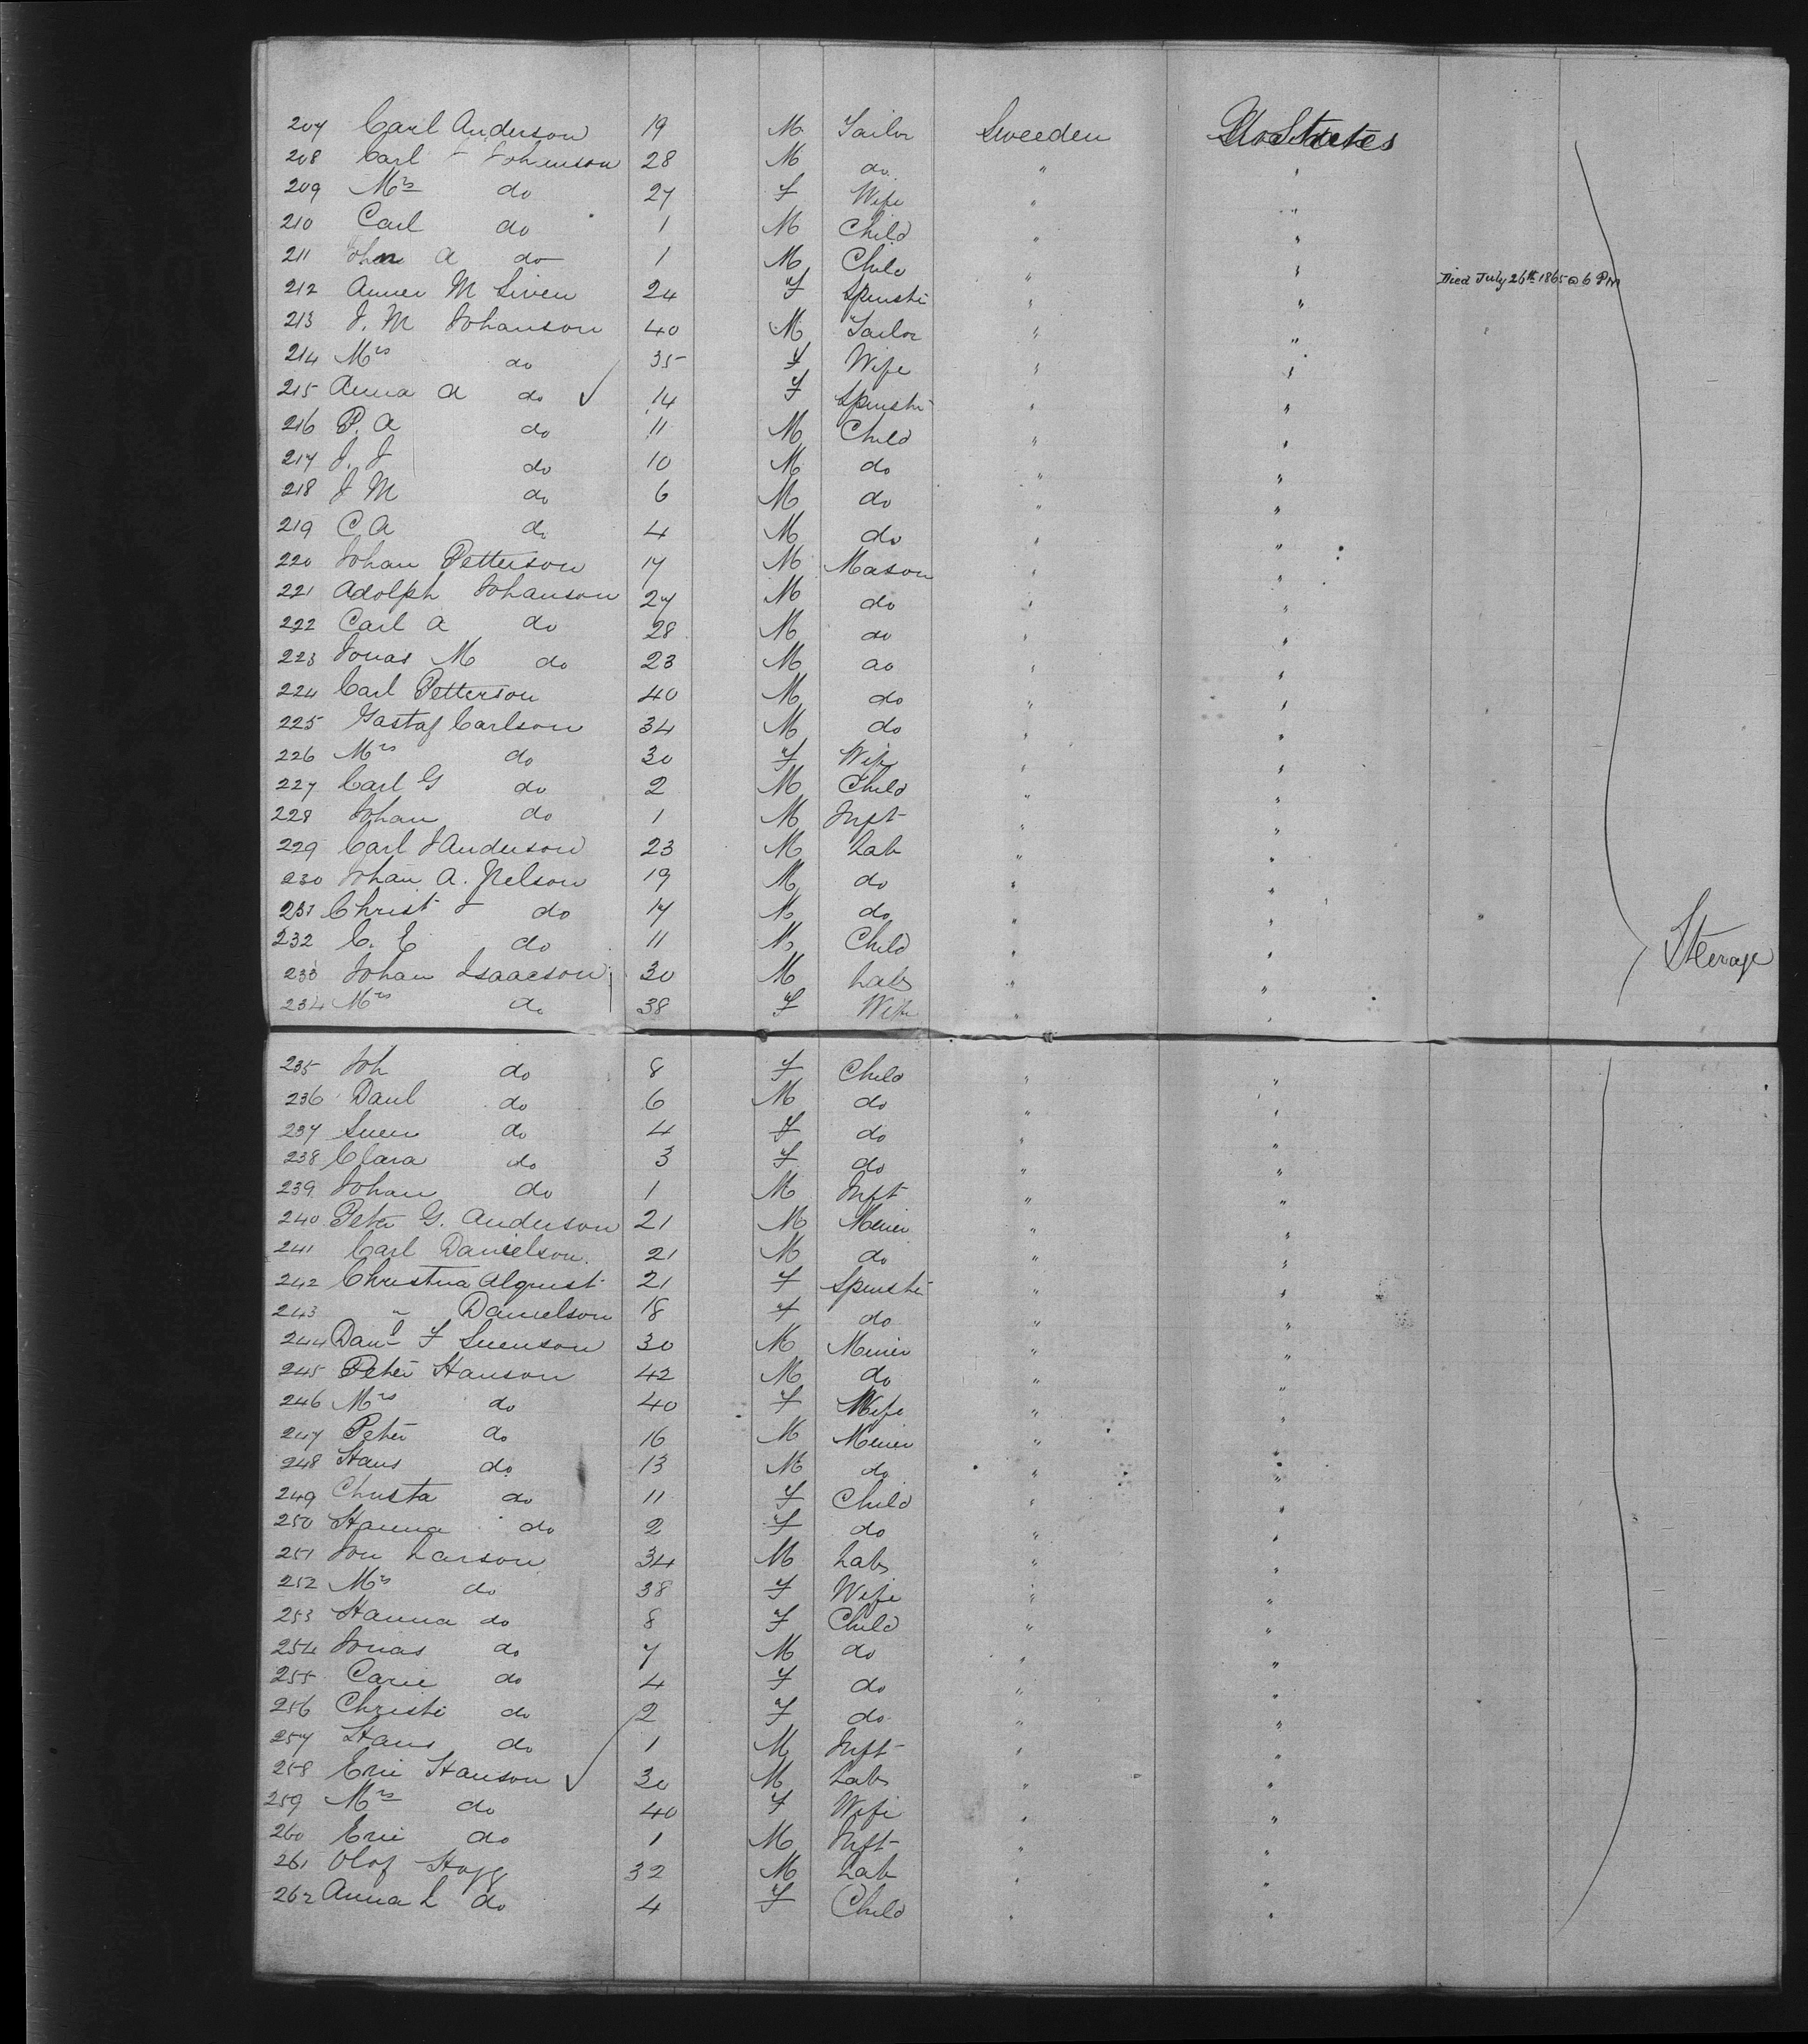 207 Carl Anderson 19 M Tailor Sweeden U. States
208 Carl J Johenson 28 M do " "
209 Mrs do 27 F Wife " "
210 Carl do 1 M Child " "
211 John A do 1 M Child " " Died July 26th 1865 @ 6 PM
212 M Siven 24 F Spinstr " "
213 J. M Johanson 40 M Tailor " "
214 Mrs do 35 F Wife " "
215 Anna A do ✓ 14 F Spinstr " "
216 P. A do 11 M Child " "
217 J. J do 10 M do " "
218 J M do 6 M do " "
219 C A do 4 M do " "
220 Johan Petterson 17 M Mason " "
221 Adolph Johanson 27 M do " "
222 Carl A do 28 M do " "
223 Jonas M do 23 M do " "
224 Carl Petterson 40 M do " "
225 Gastaf Carlson 34 M do " "
226 Mrs do 30 F Wife " "
227 Carl G do 2 M Child " "
228 Johan do 1 M Inft " "
229 Carl J Anderson 23 M Lab " "
230 Johan A. Nelson 19 M do " "
231 Christ J do 17 M do " "
232 C. E do 11 M Child " " Steerage
233 Johan Isaacson 30 M Lab " "
234 Mrs do 38 F Wife " "
235 Joh do 8 F Child " "
236 Danl do 6 M do " "
237 Suen do 4 F do " "
238 Clara do 3 F do " "
239 Johan do 1 M Inft " "
240 Peter G. Anderson 21 M Miner " "
241 Carl Danielson 21 M do " "
242 Christina Alqrust 21 F Spinstr " "
243 " Danielson 18 F do " "
244 Danl F Suenson 30 M Miner " "
245 Peter Hanson 42 M do " "
246 Mrs do 40 F Wife " "
247 Peter do 16 M Miner " "
248 Hans do 13 M do " "
249 Christa do 11 F Child " "
250 Hanna do 2 F do " "
251 Jon Larson 34 M Lab " "
252 Mrs do 38 F Wife " "
253 Hanna do 8 F Child " "
254 Jonas do 7 M do " "
255 Carie do 4 F do " "
256 Christi do 2 F do " "
257 Hans do 1 M Inft " "
258 Eric Hanson ✓ 30 M Lab " "
259 Mrs do 40 F Wife " "
260 Eric do 1 M Inft " "
261 Olof 32 M Lab " "
262 Anna L do 4 F Child " "